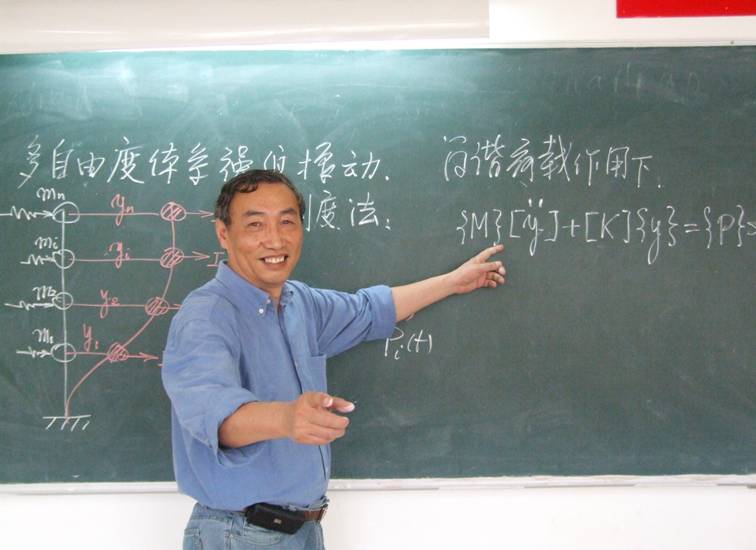 多自由度体系强迫振动. 简谐荷载作用下.
刚度法:
{M}[ÿ]+[K]{y}={P}
mn yn
mi yi
m2 y2
m1 y1
Pi(t)